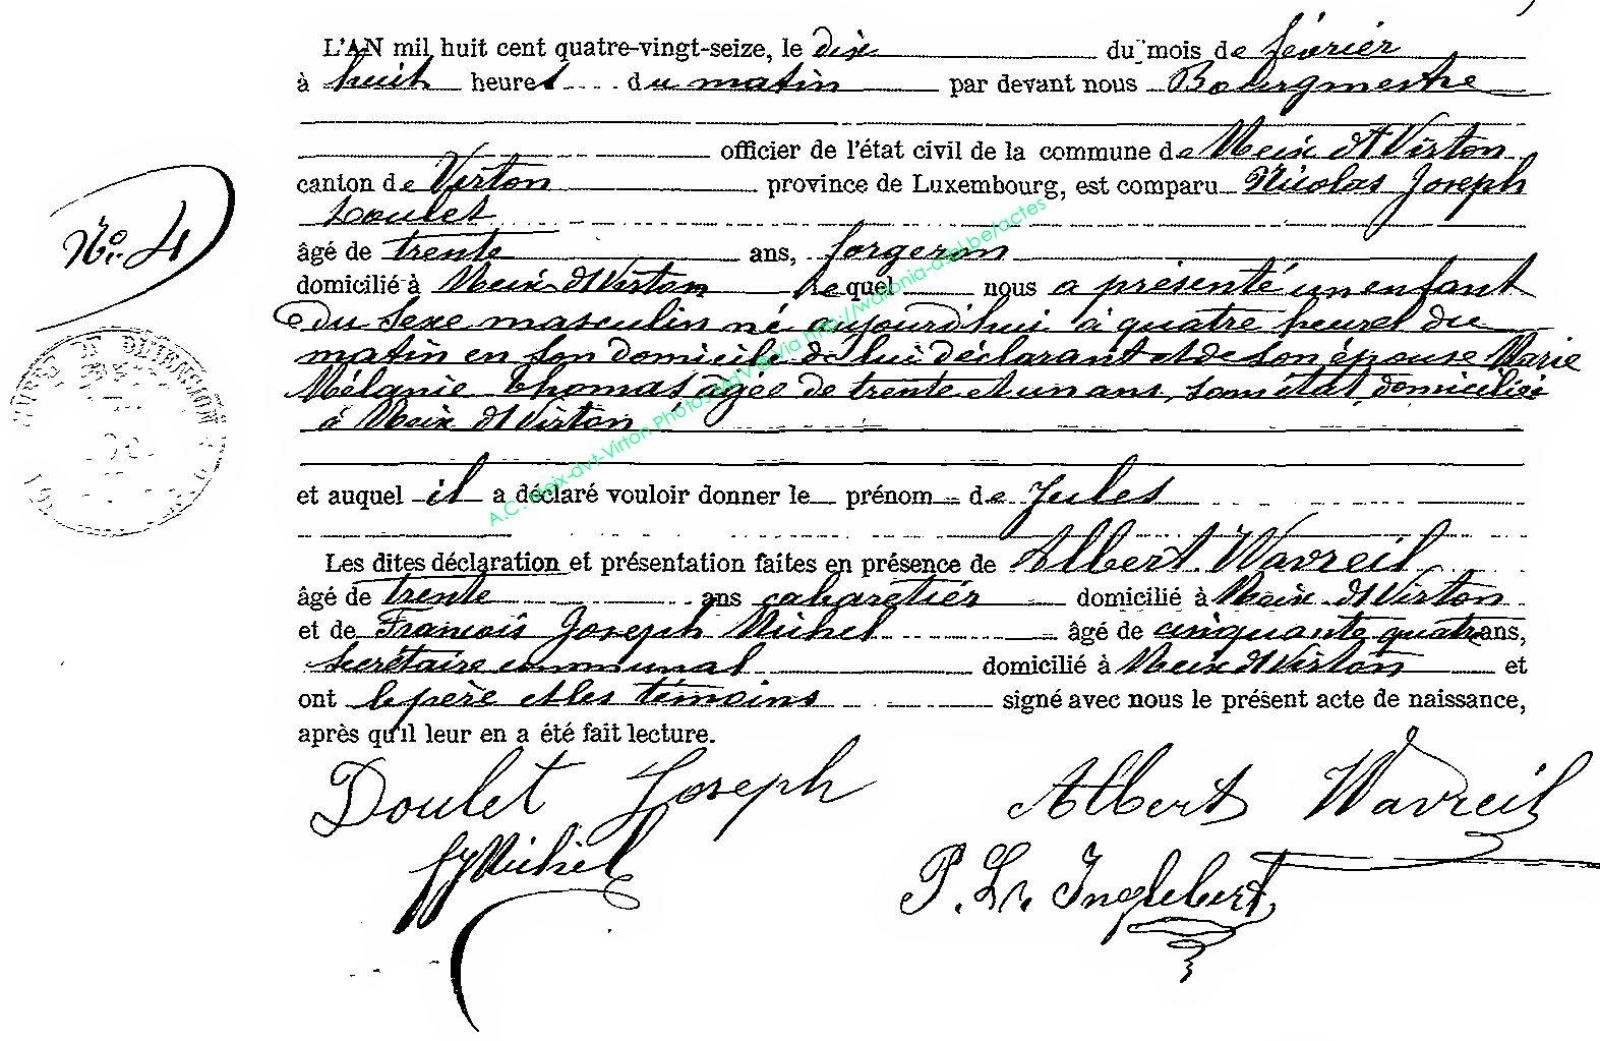 L'AN mil huit cent quatre-vingt-seize, le dix du mois de février
à huit heures du matin par devant nous Bourgmestre
officier de l'état civil de la commune de Meix dt Virton
canton de Virton province de Luxembourg, est comparu Nicolas Joseph
Doulet
âgé de trente ans, forgeron
domicilié à Meix dt Virton lequel nous a présenté un enfant
du sexe masculin né aujourd'hui à quatre heures du
matin en son domicile de lui déclarant et de son épouse Marie
Mélanie Thomas âgée de trente et un ans, sans état, domiciliée
à Meix dt Virton
et auquel il a déclaré vouloir donner le prénom de Jules
Les dites déclaration et présentation faites en présence de Albert Wavreil
âgé de trente ans cabaretier domicilié à Meix dt Virton
et de François Joseph Michel âgé de cinquante quatre ans,
secrétaire communal domicilié à Meix dt Virton et
ont le père et les témoins signé avec nous le présent acte de naissance,
après qu'il leur en a été fait lecture.
Doulet Joseph Albert Wavreil
fJMichel P. Lr. Inglebert
No. 4
A.C. Meix-dvt-Virton Photos via http://walonia-asbl.be/actes